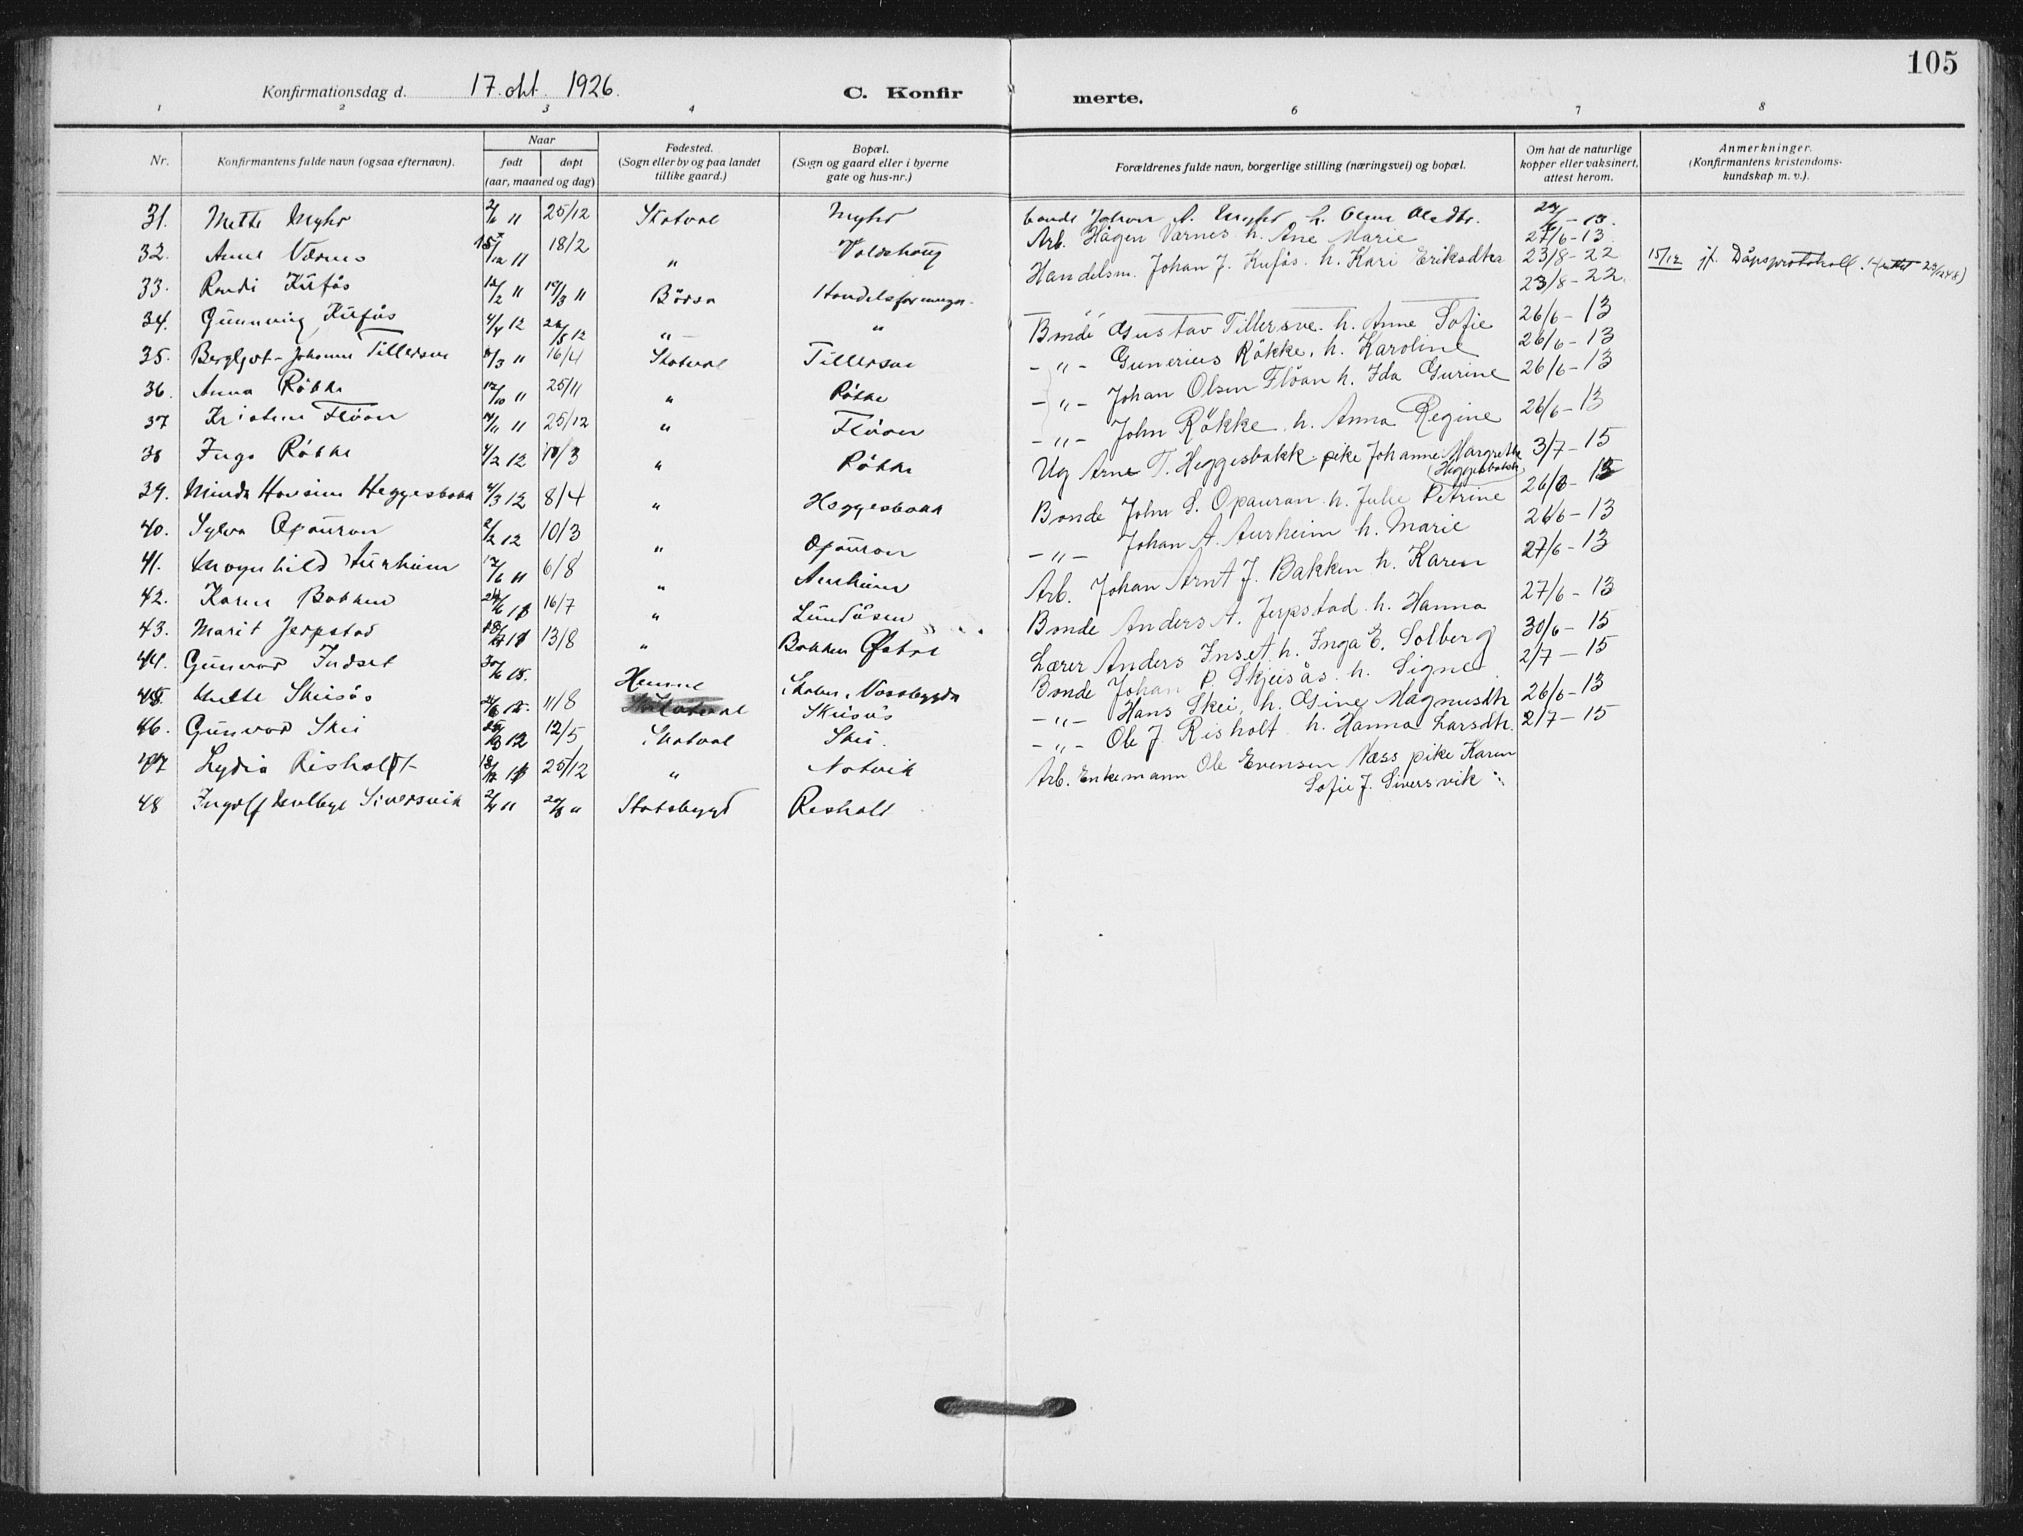 105
Konfirmationsdag d. 17. okt. 1926.
C. Konfirmerte.
1 2 3 4 6 7 8
Nr.
Konfirmantens fulde navn (ogsaa efternavn).
Naar
født
døpt
(aar, maaned og dag)
Fødested.
(Sogn eller by og paa landet
tillike gaard.)
Bopæl.
(Sogn og gaard eller i byerne
gate og hus-nr.)
Forældrenes fulde navn, borgerlige stilling (næringsvei) og bopæl.
Om hat de naturlige
kopper eller vaksinert,
attest herom.
Anmerkninger.
(Konfirmantens kristendoms-
kundskap m. v.).
31. Mette Myhr 2/6 11 25/12 Skatval Myhr
32. Anne Værnes 15/12 11 18/2 " Voldshaug
33. Randi Kufås 12/2 " 19/3 " Börsa Handelsforeningen
34. Gunnvig Kufås 4/4 12 22/5 12 " "
35. Bergljot Johanne Tillersve /3 " 16/4 Skatval Tillersve
36. Anna Røkke 12/10 " 25/11 " Røkke
37 Kristine Flöan /11 " 25/12 " Flöan
38 Inga Røkke 4/2 12 10/3 " Røkke
39. Minda Hansine Heggesbakk 4/3 12 8/4 " Heggesbakk
40. Sylva Opauran 2/2 12 10/3 " Opauran
41. Magnhild Aurheim 12/6 11 6/8 " Aurheim
42. Karen Bakken 24/6 11 16/7 " Lundåsen
43. Marit Jerpstad 18/7 11 13/8 " Bakken Østre
44. Gunvor Indset 30/6 Hemne Skolen, Vassbygda
45. Mette Skeisås 11/8 Skatval Skeisås
46. Gunvor Skei 12 12/5 Skatval Skei.
47 Lydia Risholt 18/ 11 25/12 " Natvik
48 Ingolf Siversvik 2/4 " 20/8 " Stadsbygd Risholt
bonde Johan A. Myhr h. Olsdtr. 24/6-13.
Arb. Hågen Værnes h. Ane Marie 27/6-13.
Handelsm. Johan J. Kufås. h. Kari Eriksdtr 23/8-22 15/12 jf. Dåpsprotokoll.
23/8-22.
Bonde Gustav Tillersve. h. Anne Sofie 26/6-13
-"- Gunerius Røkke, h. Karoline 26/6-13
-"- Johan Olsen Flöan h. Ida Gurine 26/6-13
-"- John Røkke h. Anna Regine 26/6-13
Ug Arne T. Heggesbakk pike Johanne Margrethe 3/7-15
(Heggesbakk)
Bonde John S. Opauran h. Julie Petrine 26/6-15
-"- Johan A. Aurheim h. Marie 26/6-13
Arb. Johan Arnt J. Bakken h. Karen 27/6-13
Bonde Anders A. Jerpstad h. Hanna 27/6-13
Lærer Anders Inset h. Inga E. Solberg 30/6-15
Bonde Johan P. Skjeisås. h. Signe 2/7-15
-"- Hans Skei, h. Gine Magnusdtr 26/6-13
-"- Ole J. Risholt h. Hanna Larsdtr. 2/7-15
Arb. Enkemann Ole Evensen Næss pike Karen
Sofie J. Siversvik